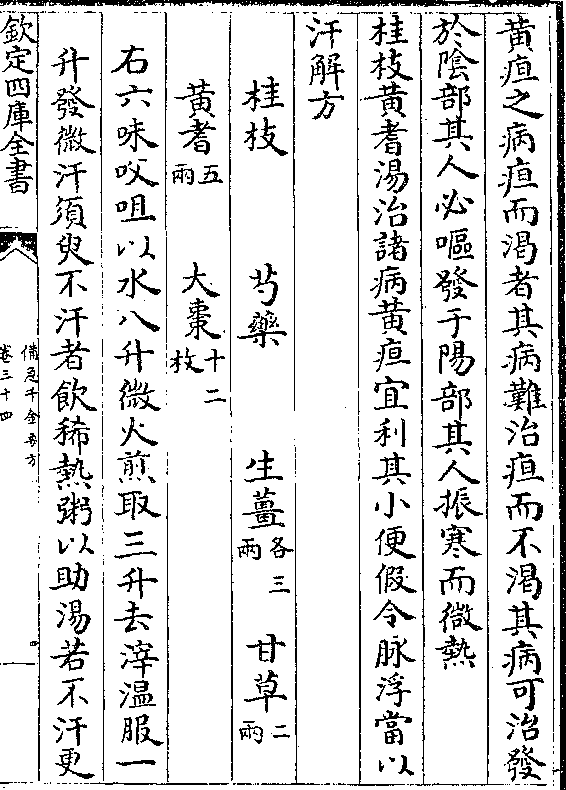 黄疸之病疸而渴者其病難治疸而不渴其病可治發
於陰部其人必嘔發于陽部其人振寒而微熱
桂枝黄耆湯治諸病黄疸宜利其小便假令脉浮當以
汗解方
桂枝 芍藥 生薑各三兩 甘草二兩
黄耆五兩 大棗十二枚
右六味㕮咀以水八升微火煎取三升去滓温服一
升發微汗須臾不汗者飲稀熱粥以助湯若不汗更
欽定四庫全書
備急千金要方
卷三十四